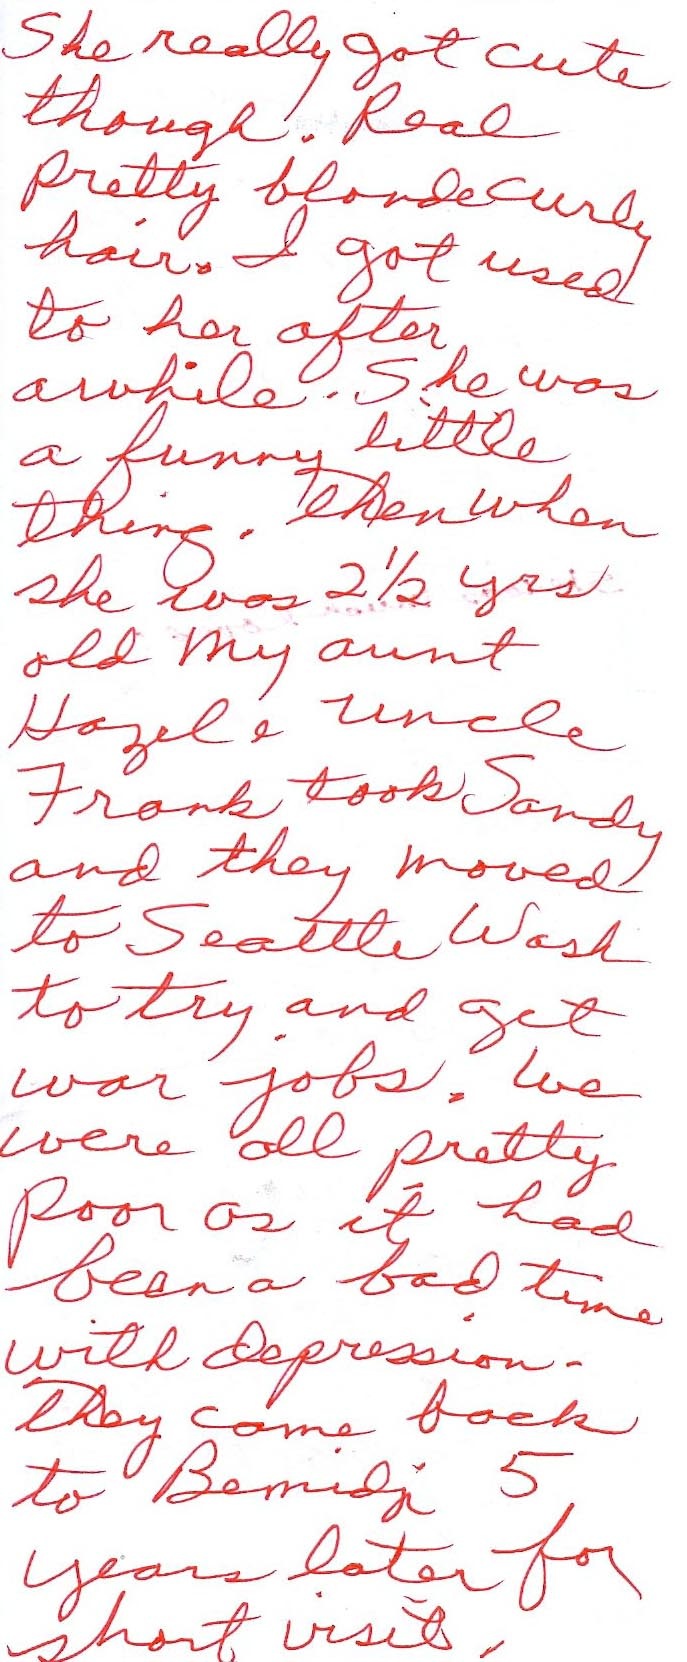 She really got cute
though. Real
pretty blonde curly
hair. I got used
to her after
awhile. She was
a funny little
thing. Then when
she was 2 1/2 yrs
old My aunt
Hazel & uncle
Frank took Sandy
and they moved
to Seattle Wash
to try and get
war jobs. We
were all pretty
poor as it had
been a bad time
with depression-
They came back
to Bemidji 5
years later for
short visit.